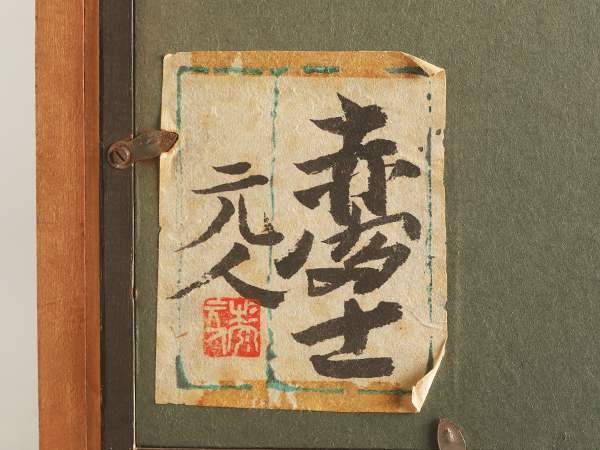 赤富士
元人